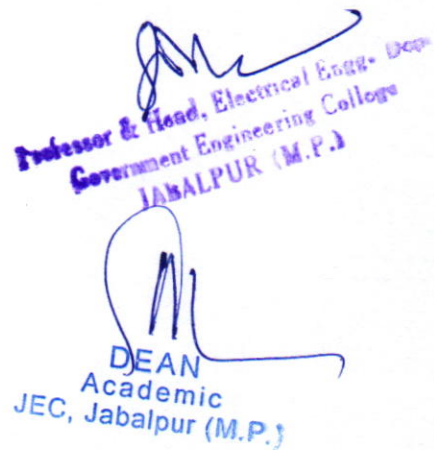 Professor & Head, Electrical Engg. Dep
Government Engineering College
JABALPUR (M.P.)
DEAN
Academic
JEC, Jabalpur (M.P.)